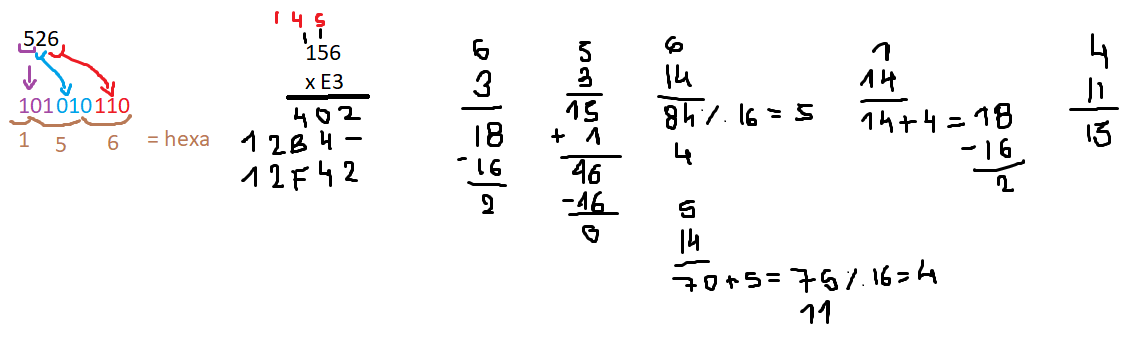 526
101010110
1 5 6 = hexa
1 4 5
156
x E3
402
12B4-
12F42
6
3
18
-16
2
5
3
15
+ 1
16
-16
0
6
14
84 % 16 = 5
4
5
14
70+5=75%.16=4
11
1
14
14+4=18
-16
2
4
11
15